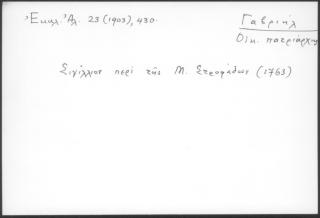 Ἐκκλ. Ἀλ. 23 (1903), 430.
Γαβριήλ
Οἰκ. πατριάρχης
Σιγίλλιον περὶ τῆς Μ. Στροφάδων (1763)